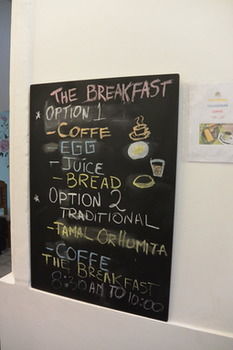 THE BREAKFAST
* OPTION 1
- COFFE
- EGG
- JUICE
- BREAD
* OPTION 2
TRADITIONAL
- TAMAL OR HUMITA
- COFFE
THE BREAKFAST
8:30 AM TO 10:00